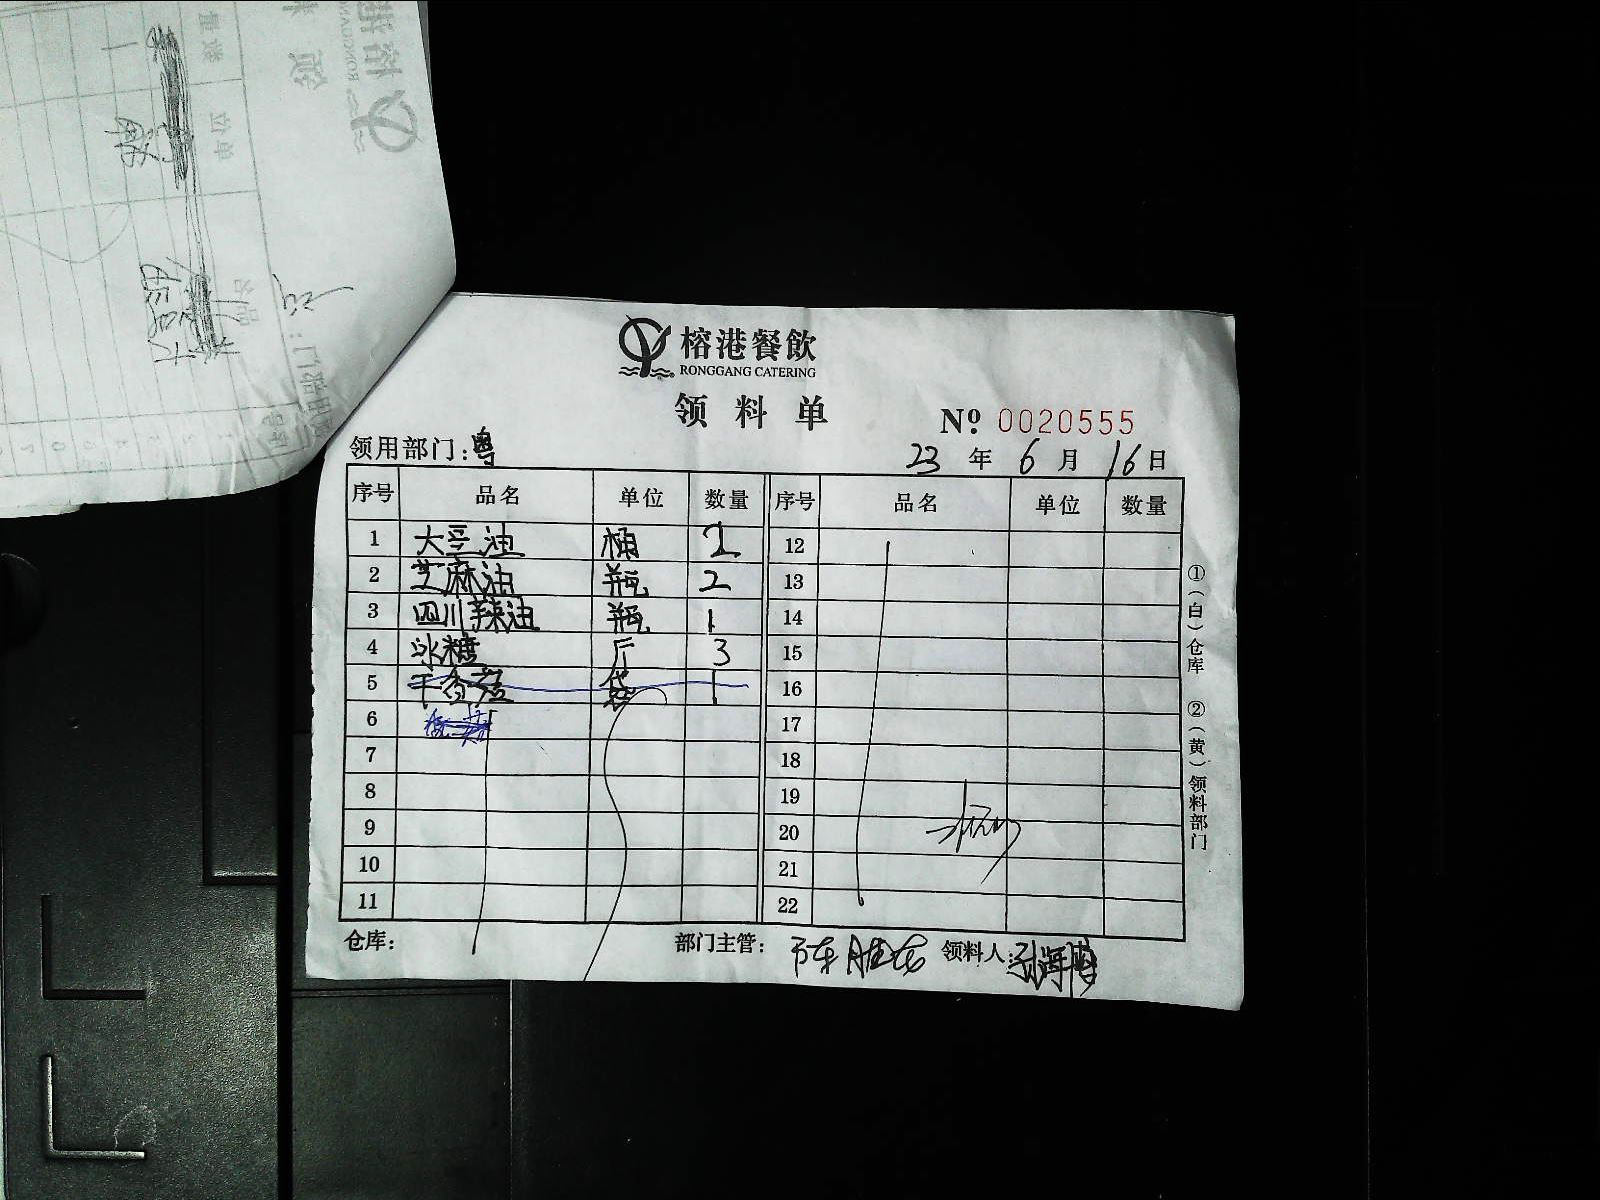 榕港餐飲
RONGGANG CATERING
领料单
№ 0020555
领用部门:粤
23 年 6 月 16 日
序号 品名 单位 数量 序号 品名 单位 数量
1 大豆油 桶 2 12
2 芝麻油 瓶 2 13
3 四川辣油 瓶 1 14
4 冰糖 斤 3 15
5 干香菇 袋 1 16
6 17
7 18
8 19
9 20
10 21
11 22
①(白)仓库 ②(黄)领料部门
仓库: 部门主管: 陈胜龙 领料人: